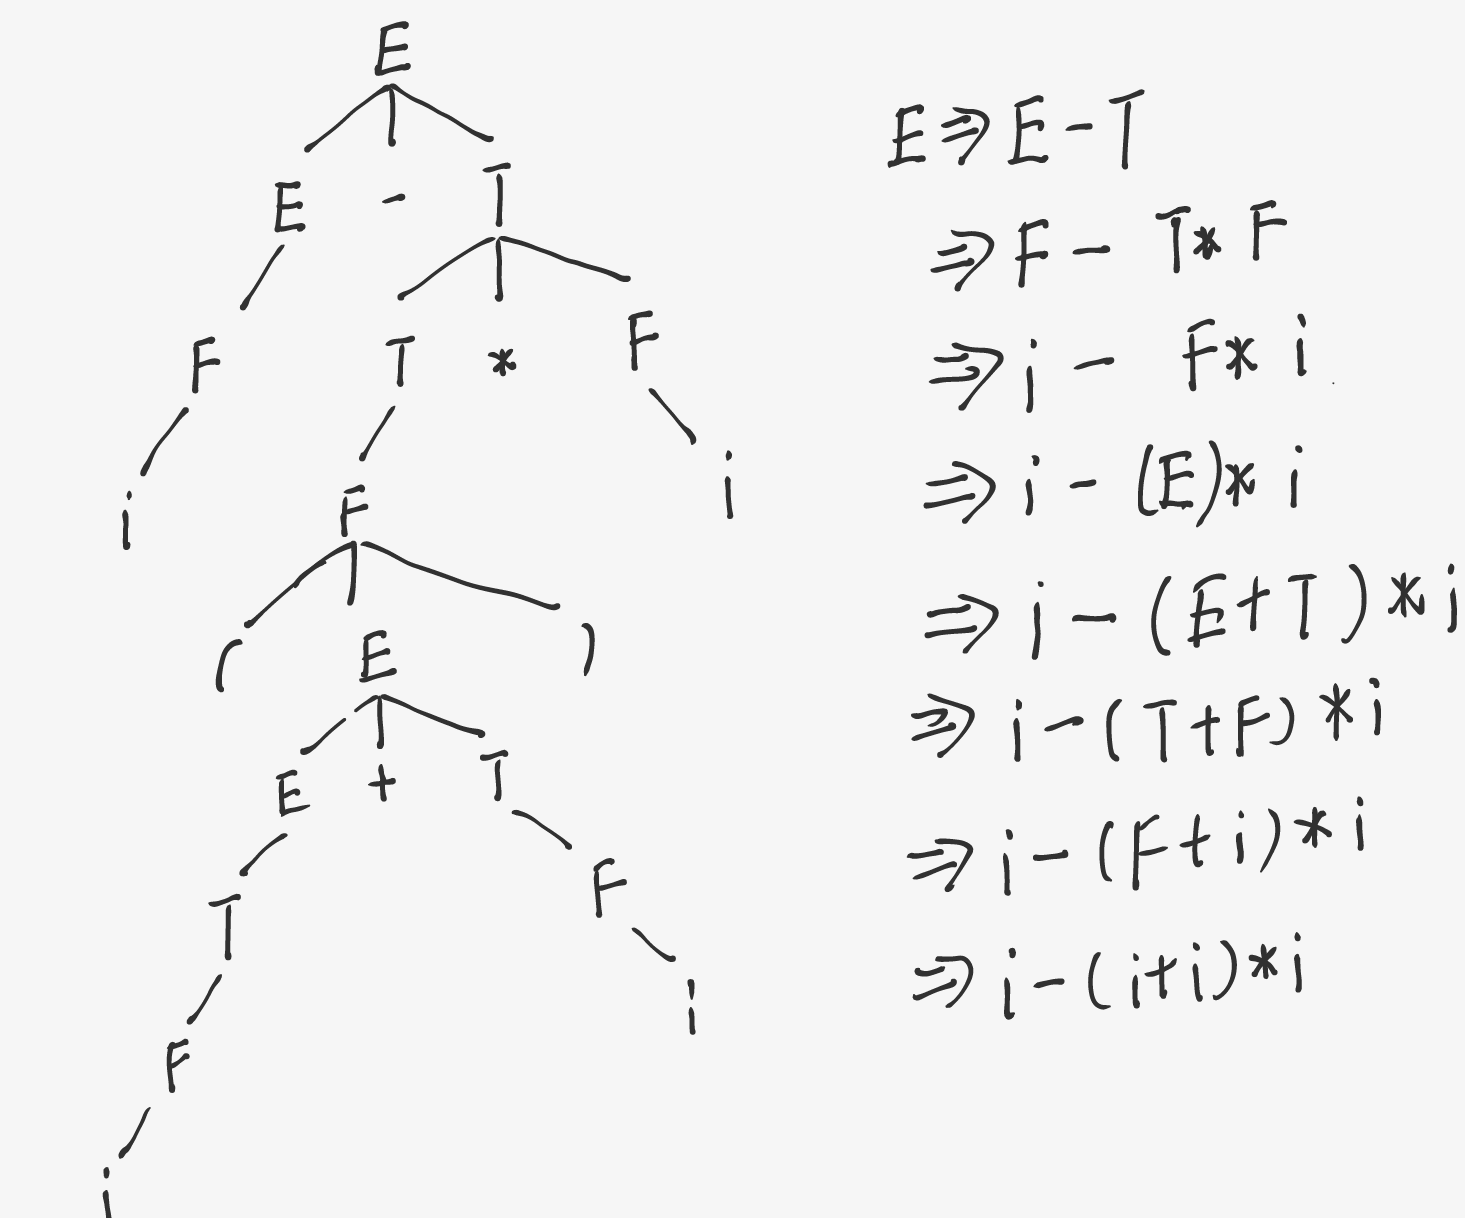 E
E - T
F T * F
i F i
( E )
E + T
T F
F i
i
E ⇒ E - T
⇒ F - T * F
⇒ i - F * i
⇒ i - (E) * i
⇒ i - (E + T) * i
⇒ i - (T + F) * i
⇒ i - (F + i) * i
⇒ i - (i + i) * i